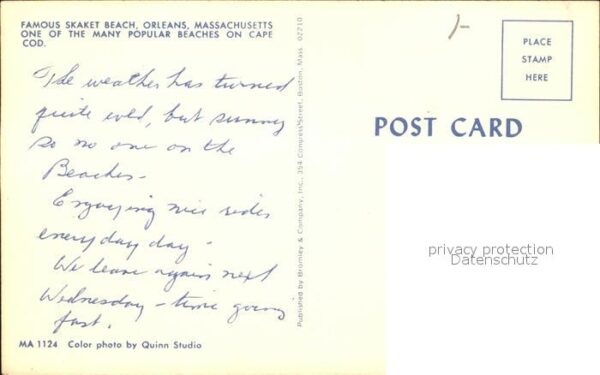 FAMOUS SKAKET BEACH, ORLEANS, MASSACHUSETTS
ONE OF THE MANY POPULAR BEACHES ON CAPE
COD.
The weather has turned
quite cold, but sunny
so no one on the
Beaches-
Enjoying nice rides
everyday day.
We leave again next
Wednesday - time going
fast.
MA 1124 Color photo by Quinn Studio
Published by Bromley & Company, Inc., 354 Congress Street, Boston, Mass. 02210
1-
PLACE
STAMP
HERE
POST CARD
privacy protection
Datenschutz